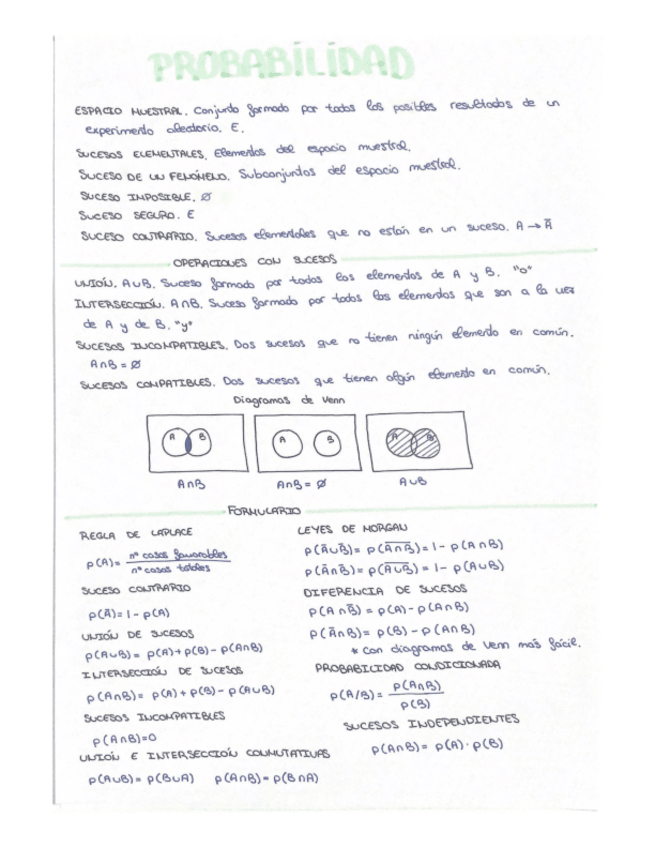 PROBABILIDAD
ESPACIO MUESTRAL. Conjunto formado por todos los posibles resultados de un
experimento aleatorio. E.
SUCESOS ELEMENTALES. Elementos del espacio muestral.
SUCESO DE UN FENÓMENO. Subconjuntos del espacio muestral.
SUCESO IMPOSIBLE. Ø
SUCESO SEGURO. E
SUCESO CONTRARIO. Sucesos elementales que no están en un suceso. A → Ā
OPERACIONES CON SUCESOS
UNIÓN. A∪B. Suceso formado por todos los elementos de A y B. "o"
INTERSECCIÓN. A∩B. Suceso formado por todos los elementos que son a la vez
de A y de B. "y"
SUCESOS INCOMPATIBLES. Dos sucesos que no tienen ningún elemento en común.
A∩B = Ø
SUCESOS COMPATIBLES. Dos sucesos que tienen algún elemento en común.
Diagramas de Venn
A B
A B
A B
A∩B
A∩B = Ø
A∪B
FORMULARIO
REGLA DE LAPLACE
p(A) = nº casos favorables / nº casos totales
SUCESO CONTRARIO
p(Ā) = 1 - p(A)
UNIÓN DE SUCESOS
p(A∪B) = p(A) + p(B) - p(A∩B)
INTERSECCIÓN DE SUCESOS
p(A∩B) = p(A) + p(B) - p(A∪B)
SUCESOS INCOMPATIBLES
p(A∩B) = 0
UNIÓN E INTERSECCIÓN CONMUTATIVAS
p(A∪B) = p(B∪A) p(A∩B) = p(B∩A)
LEYES DE MORGAN
p(Ā∪B̅) = p(A̅∩̅B̅) = 1 - p(A∩B)
p(Ā∩B̅) = p(A̅∪̅B̅) = 1 - p(A∪B)
DIFERENCIA DE SUCESOS
p(A∩B̅) = p(A) - p(A∩B)
p(Ā∩B) = p(B) - p(A∩B)
* con diagramas de Venn más fácil.
PROBABILIDAD CONDICIONADA
p(A/B) = p(A∩B) / p(B)
SUCESOS INDEPENDIENTES
p(A∩B) = p(A) · p(B)